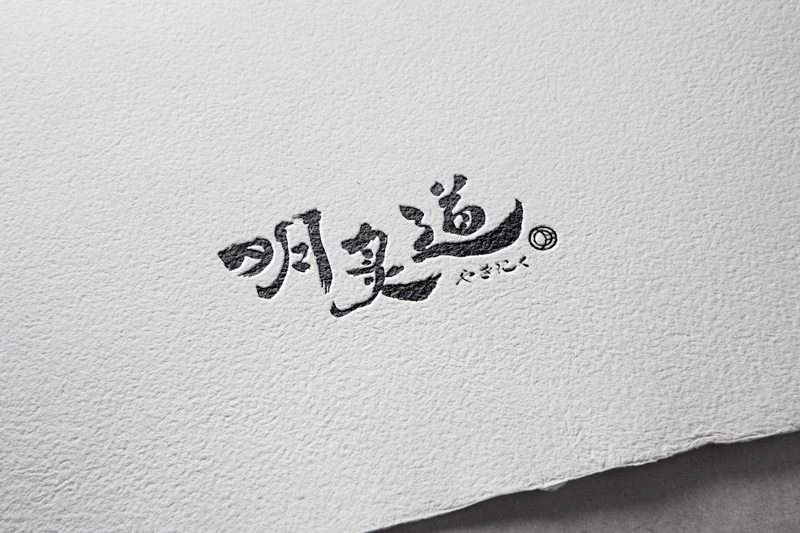 明炙道
やきにく